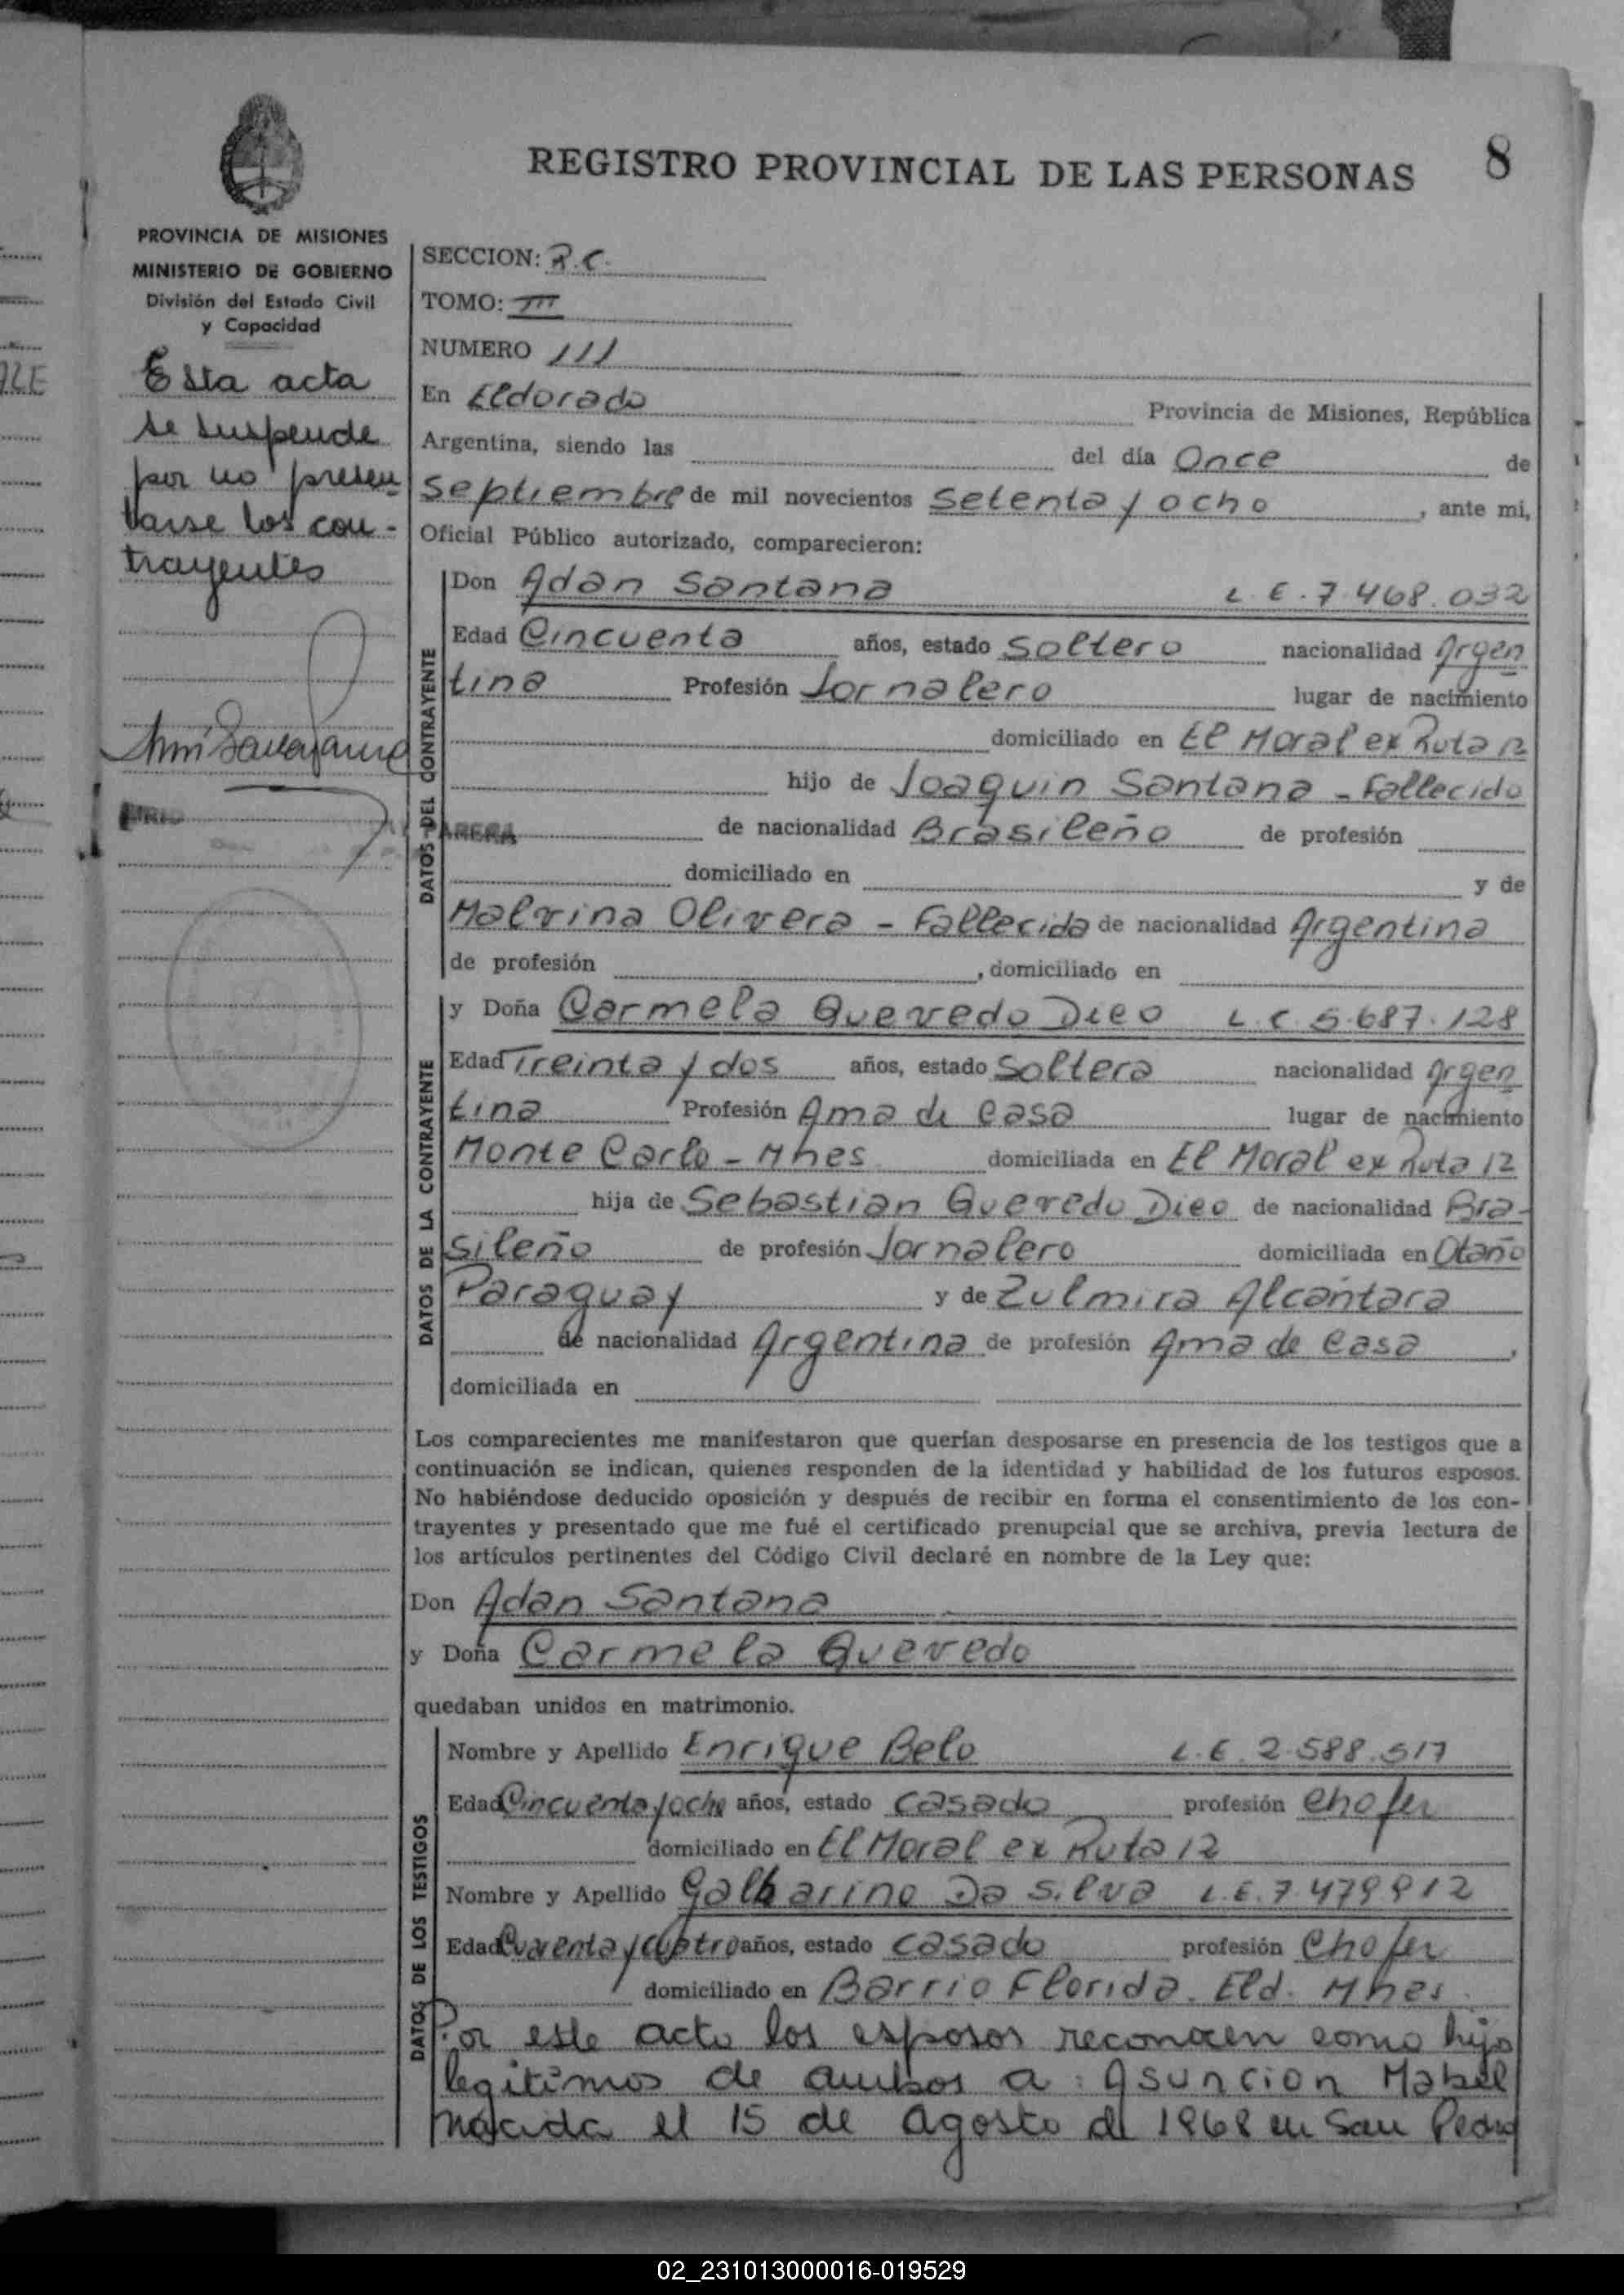 REGISTRO PROVINCIAL DE LAS PERSONAS
8
PROVINCIA DE MISIONES
MINISTERIO DE GOBIERNO
División del Estado Civil
y Capacidad
Esta acta
se suspende
por no presen
tarse los con-
trayentes
SECCION: R.C.
TOMO: III
NUMERO 111
En Eldorado Provincia de Misiones, República
Argentina, siendo las del día Once de
Septiembre de mil novecientos Setenta y ocho, ante mi,
Oficial Público autorizado, comparecieron:
DATOS DEL CONTRAYENTE
Don Adan Santana L.E. 7.468.032
Edad Cincuenta años, estado Soltero nacionalidad Argen
tina Profesión Jornalero lugar de nacimiento
domiciliado en El Moral ex Ruta 12
hijo de Joaquin Santana - Fallecido
de nacionalidad Brasileño de profesión
domiciliado en y de
Malvina Olivera - Fallecida de nacionalidad Argentina
de profesión , domiciliado en
DATOS DE LA CONTRAYENTE
y Doña Carmela Quevedo Dieo L.C 5.687.128
Edad Treinta y dos años, estado Soltera nacionalidad Argen
tina Profesión Ama de Casa lugar de nacimiento
Monte Carlo - Mnes domiciliada en El Moral ex Ruta 12
hija de Sebastian Quevedo Dieo de nacionalidad Bra-
sileño de profesión Jornalero domiciliada en Otaño
Paraguay y de Zulmira Alcántara
de nacionalidad Argentina de profesión Ama de Casa,
domiciliada en
Los comparecientes me manifestaron que querían desposarse en presencia de los testigos que a
continuación se indican, quienes responden de la identidad y habilidad de los futuros esposos.
No habiéndose deducido oposición y después de recibir en forma el consentimiento de los con-
trayentes y presentado que me fué el certificado prenupcial que se archiva, previa lectura de
los artículos pertinentes del Código Civil declaré en nombre de la Ley que:
Don Adan Santana
y Doña Carmela Quevedo
quedaban unidos en matrimonio.
DATOS DE LOS TESTIGOS
Nombre y Apellido Enrique Belo L.E. 2.588.517
Edad Cincuenta y ocho años, estado Casado profesión Chofer
domiciliado en El Moral ex Ruta 12
Nombre y Apellido Galbarino Da Silva L.E. 7.479912
Edad Cuarenta y cuatro años, estado Casado profesión Chofer
domiciliado en Barrio Florida. Eld. Mnes.
Por este acto los esposos reconocen como hijo
legitimos de ambos a: Asuncion Mabel
nacida el 15 de agosto de 1968 en San Pedro
02_231013000016-019529